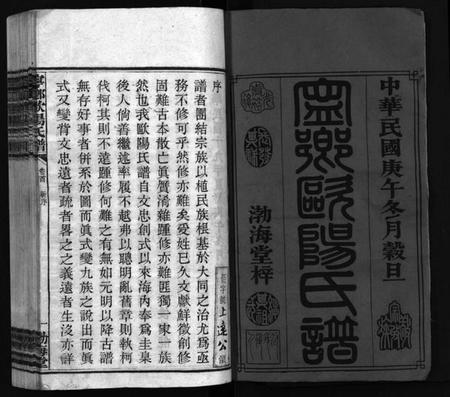 中華民國庚午冬月穀旦
寧鄉歐陽氏譜
渤海堂梓
序
譜者團結宗族以植民族根基於大同之治尤爲亟
務不修可乎然修亦難矣受姓已久文獻鮮徵創修
固難古本散亡眞贋淆雜踵修亦難匪獨一家一族
然也我歐陽氏譜自文忠創式以來海內奉爲圭臬
後人倘善繼述率履不越弗以聰明亂舊章則執柯
伐柯其則不遠踵修何難之有無如元明以降古譜
無存好事者併系於圖而眞式變九族之說出而眞
式又變背文忠遠者疏者畧之之義遠者生沒亦詳
上達公
寧鄉歐陽氏譜
卷首
渤海堂